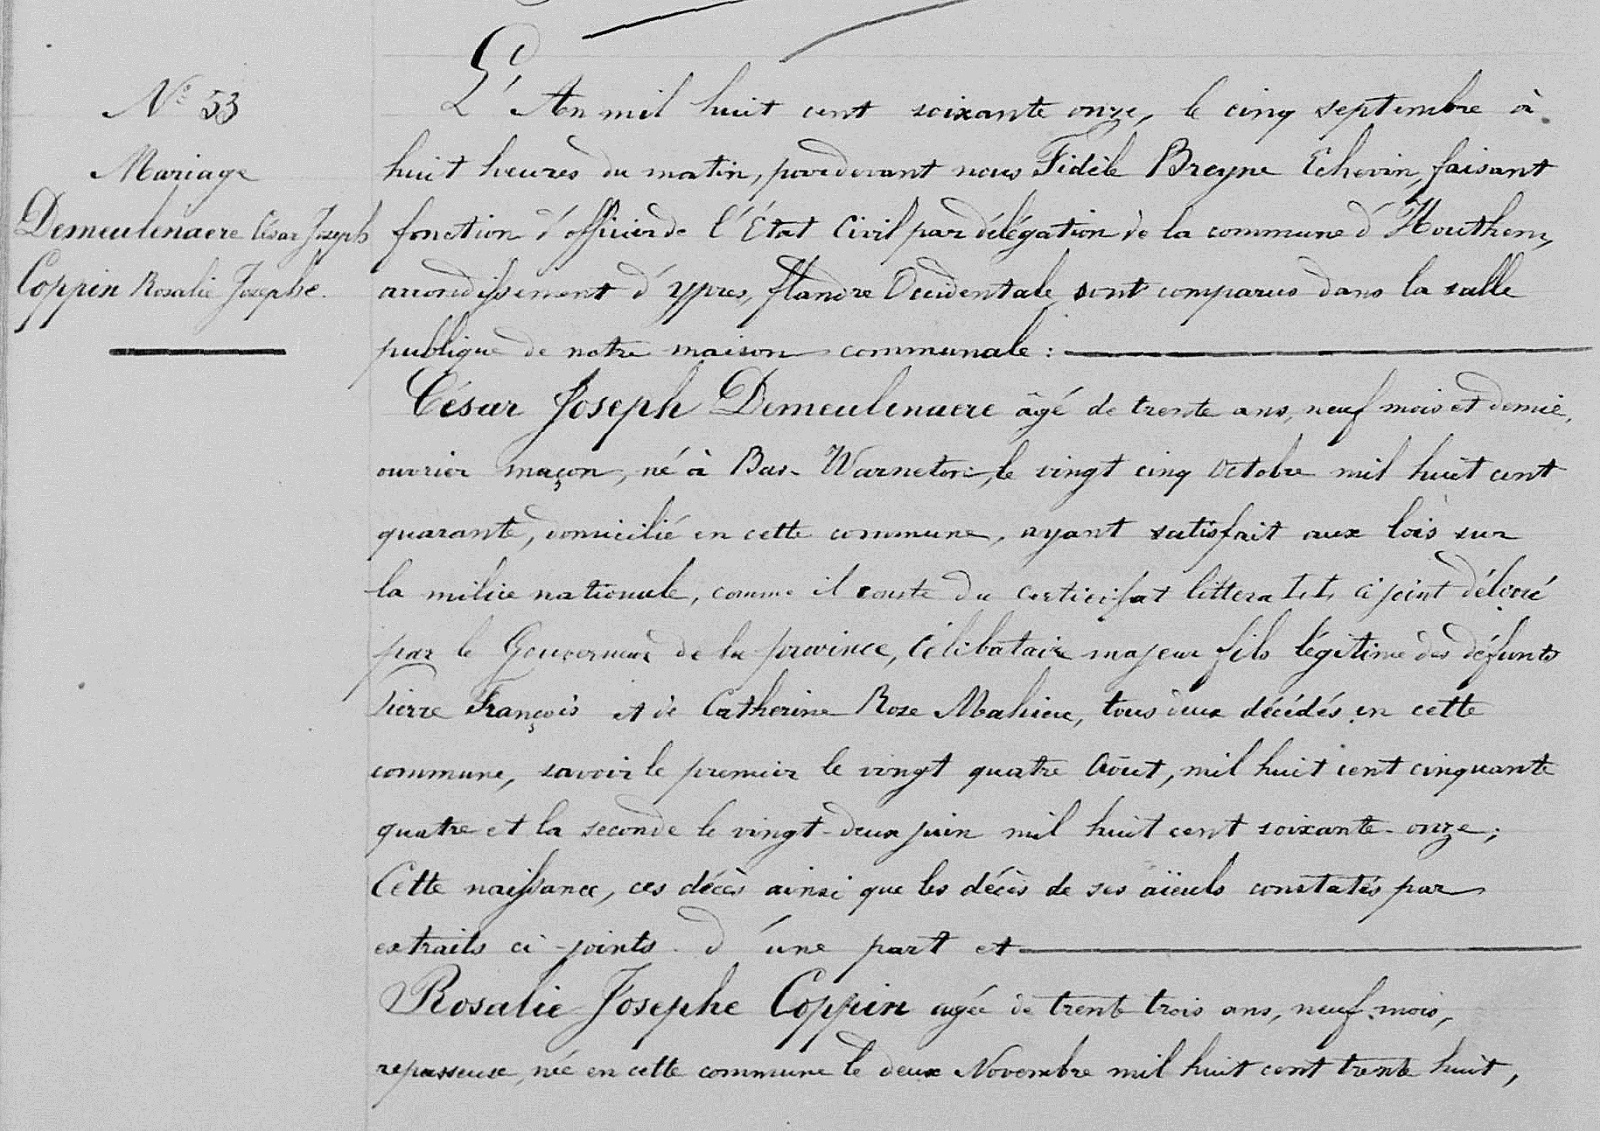 N° 53
Mariage
Demeulenaere César Joseph
Coppin Rosalie Josephe.
L'An mil huit cent soixante onze, le cinq septembre à
huit heures du matin, pardevant nous Fidèle Breyne Echevin, faisant
fonction d'officier de l'État Civil par délégation de la commune d'Houthem,
arrondissement d'ypres, flandre Occidentale, sont comparus dans la salle
publique de notre maison communale :
César Joseph Demeulenaere âgé de trente ans, neuf mois et demie,
ouvrier maçon, né à Bas-Warneton, le vingt cinq octobre mil huit cent
quarante, domicilié en cette commune, ayant satisfait aux lois sur
la milice nationale, comme il conste du certificat littera L.L. ci joint délivré
par le Gouverneur de la province, célibataire majeur fils légitime des défunts
Pierre François et de Catherine Rose Mahieu, tous deux décédés en cette
commune, savoir le premier le vingt quatre Août, mil huit cent cinquante
quatre et la seconde le vingt-deux juin mil huit cent soixante-onze ;
Cette naissance, ces décès ainsi que les décès de ses aïeuls constatés par
extraits ci-joints d'une part et
Rosalie Josephe Coppin agée de trente trois ans, neuf mois,
repasseuse, née en cette commune le deux Novembre mil huit cent trente huit,